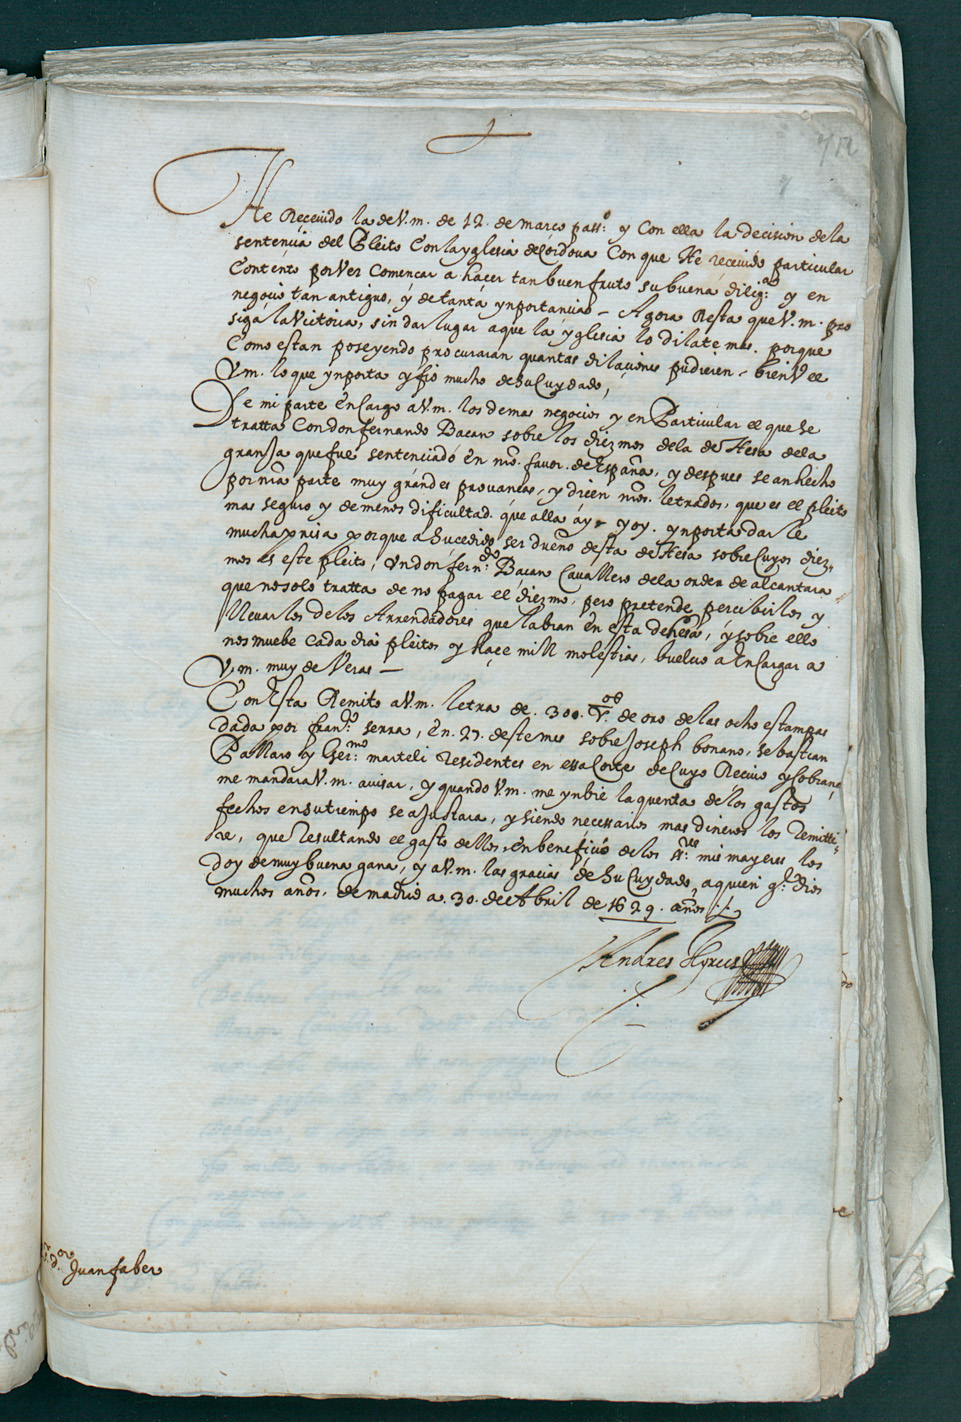 712
He Receuido la de V.m. de 12. de março passº. y Con ella la decision de la
sentencia del Pleito Con la yglesia de Cordoua Con que He receuido particular
Contento por Ver Començar a hacer tan buen fruto su buena diligª. y en
negocio tan antiguo, y de tanta ynportancia – Agora Resta que V.m. pro
siga la Victoria, sin dar lugar a que la yglesia lo dilate mas. porque
Como estan poseyendo procuraran quantas dilaciones pudieren – bien Vee
V.m. lo que ynporta y fio mucho de su Cuydado,
De mi parte enCargo a V.m. los demas negocios y en Particular el que se
tratta Con don fernando Baçan sobre los diezmos de la deHesa de la
granja que fue sentenciado en nrõ. fauor. de España, y despues se an hecho
por nrã parte muy grandes prouancas, y dicen nrõs. letrados, que es el pleito
mas seguro y de menos dificultad. que alla ay – y oy. ynporta dar le
mucha prisa porque a sucedido ser dueño desta deHesa sobre Cuyos diez-
mos es este pleito, Un don fernᵈᵒ. Baçan Cauallero de la orden de alcantara
que no solo tratta de no pagar el diezmo, pero pretende percibirlos y
lleuarlos de los Arrendadores que labran en esta dehesa, y sobre ello
nos muebe cada dia pleitos y haçe mill molestias, bueluo a enCargar a
V.m. muy de Veras –
Con Esta Remito a V.m. letra de .300. Vᵒˢ. de oro de las ocho estampas
dada por franᶜᵒ. serra, en 27. deste mes sobre Joseph bonano, sebastian
Pallaro y Gerᵐᵒ. marteli Residentes en essa Corte de Cuyo Reciuo y sobrane,
me mandara V.m. auisar, y quando V.m. me ynbie la quenta de los gastos
fechos en su tiempo se ajustara, y siendo necessarios mas dineros los Remitti-
re, que Resultando el gasto dellos, en beneficio de los sʳᵉˢ. mis mayores los
doy de muy buena gana, y a V.m. las gracias de su Cuydado, a quien gᵈᵉ. dios
muchos años. de madrid a 30. de Abril de 1629. años
Andres
Juan faber